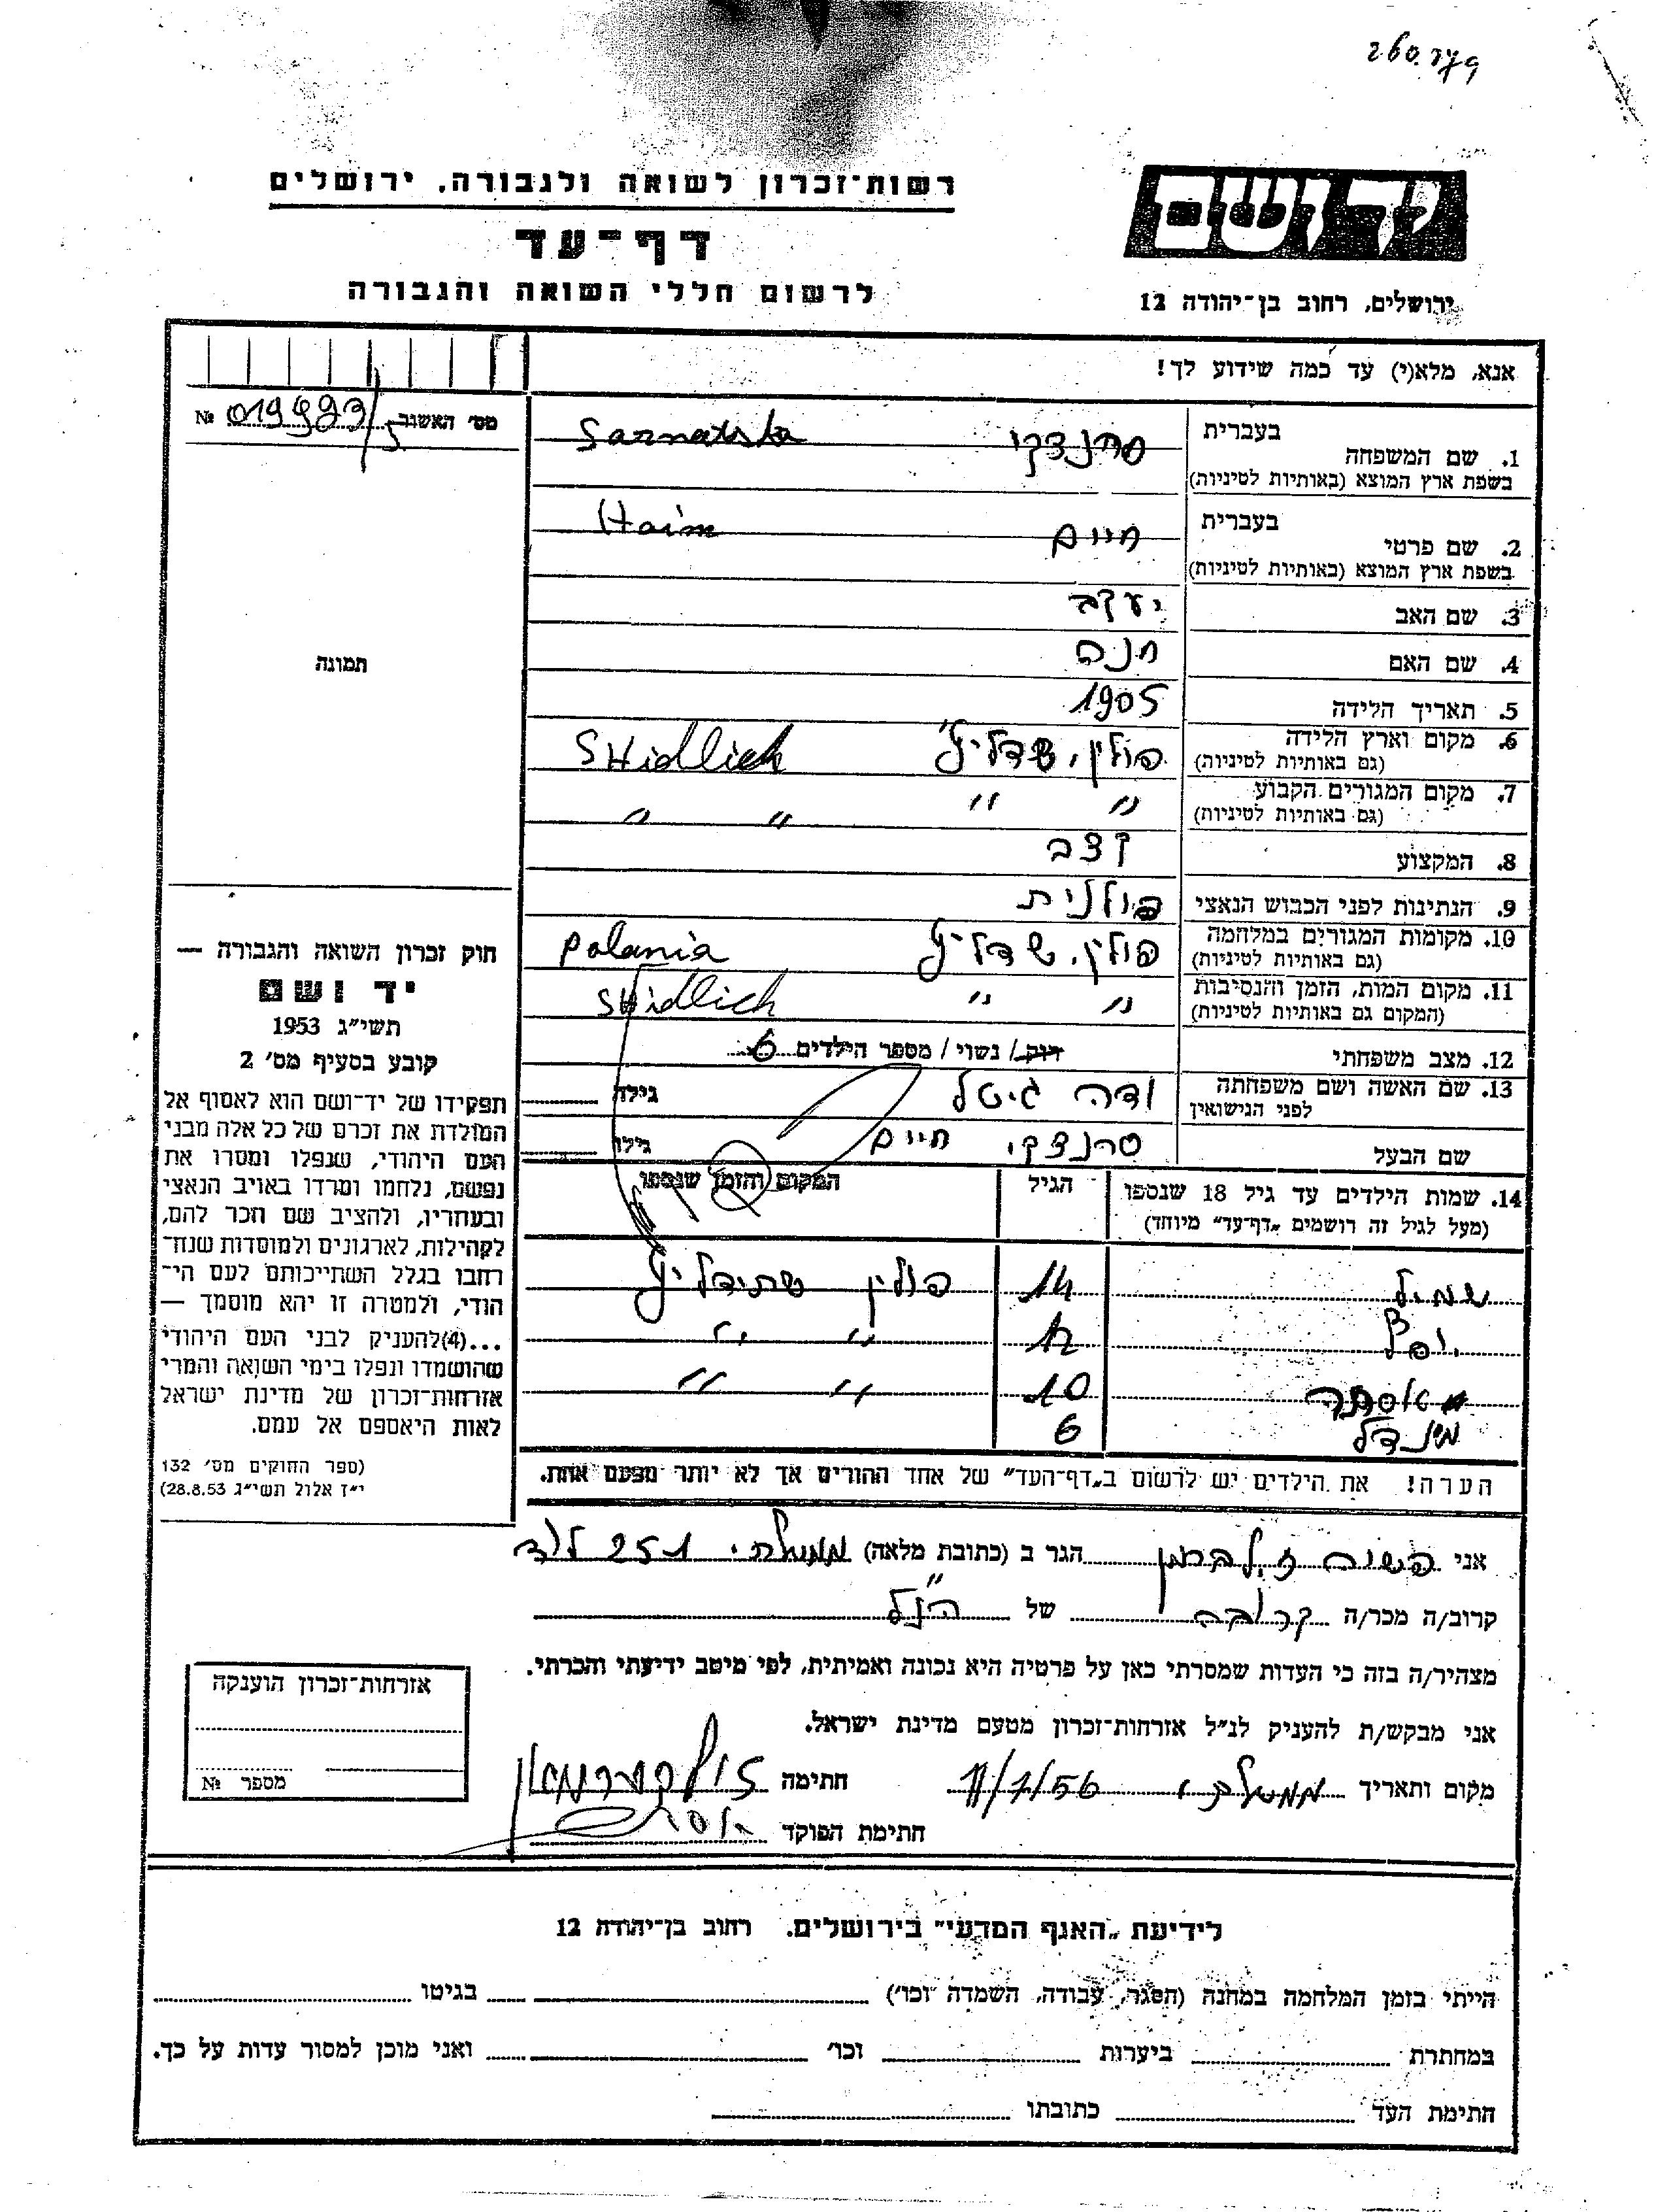 רשות־זכרון לשואה ולגבורה, ירושלים
דף־עד
לרשום חללי השואה והגבורה
יד ושם
ירושלים, רחוב בן־יהודה 12
אנא, מלא(י) עד כמה שידוע לך!
מס׳ האשנב № 019993/5
1. שם המשפחה בעברית סרנצקי Sarnatska
בשפת ארץ המוצא (באותיות לטיניות)
2. שם פרטי בעברית חיים Haim
בשפת ארץ המוצא (באותיות לטיניות)
3. שם האב יעקב
4. שם האם חנה
תמונה
5. תאריך הלידה 1905
6. מקום וארץ הלידה פולין, שדליץ SHidlich
(גם באותיות לטיניות)
7. מקום המגורים הקבוע " " " "
(גם באותיות לטיניות)
8. המקצוע קצב
9. הנתינות לפני הכבוש הנאצי פולנית
10. מקומות המגורים במלחמה פולין, שדליץ polania
(גם באותיות לטיניות)
11. מקום המות, הזמן והנסיבות " " SHidlich
(המקום גם באותיות לטיניות)
12. מצב משפחתי רווק / נשוי / מספר הילדים 6
13. שם האשה ושם משפחתה גיטל גילה
לפני הנישואין
שם הבעל סרנצקי חיים גילו
14. שמות הילדים עד גיל 18 שנספו הגיל המקום והזמן שנספו
(מעל לגיל זה רושמים „דף־עד” מיוחד)
שמיל 14 פולין שידליץ
12 " "
אסתר 10 " "
מינדל 6
הערה! את הילדים יש לרשום ב„דף־העד” של אחד ההורים אך לא יותר מפעם אחת.
חוק זכרון השואה והגבורה —
יד ושם
תשי״ג 1953
קובע בסעיף מס׳ 2
תפקידו של יד־ושם הוא לאסוף אל
המולדת את זכרם של כל אלה מבני
העם היהודי, שנפלו ומסרו את
נפשם, נלחמו ומרדו באויב הנאצי
ובעוזריו, ולהציב שם וזכר להם,
לקהילות, לארגונים ולמוסדות שנח־
רבו בגלל השתייכותם לעם הי־
הודי, ולמטרה זו יהא מוסמך —
...(4)להעניק לבני העם היהודי
שהושמדו ונפלו בימי השואה והמרי
אזרחות־זכרון של מדינת ישראל
לאות היאספם אל עמם.
(ספר החוקים מס׳ 132
י״ז אלול תשי״ג 28.8.53)
אני זילברמן הגר ב (כתובת מלאה) ממשלתי 251 לוד
קרוב/ה מכר/ה קרובה של הנ״ל
מצהיר/ה בזה כי העדות שמסרתי כאן על פרטיה היא נכונה ואמיתית, לפי מיטב ידיעתי והכרתי.
אני מבקש/ת להעניק לנ״ל אזרחות־זכרון מטעם מדינת ישראל.
מקום ותאריך 11/7/56 חתימה
חתימת הפוקד
אזרחות־זכרון הוענקה
מספר №
לידיעת „האגף המדעי” בירושלים. רחוב בן־יהודה 12
הייתי בזמן המלחמה במחנה (הסגר, עבודה, השמדה וכו׳) בגיטו
במחתרת ביערות וכו׳ ואני מוכן למסור עדות על כך.
חתימת העד כתובתו